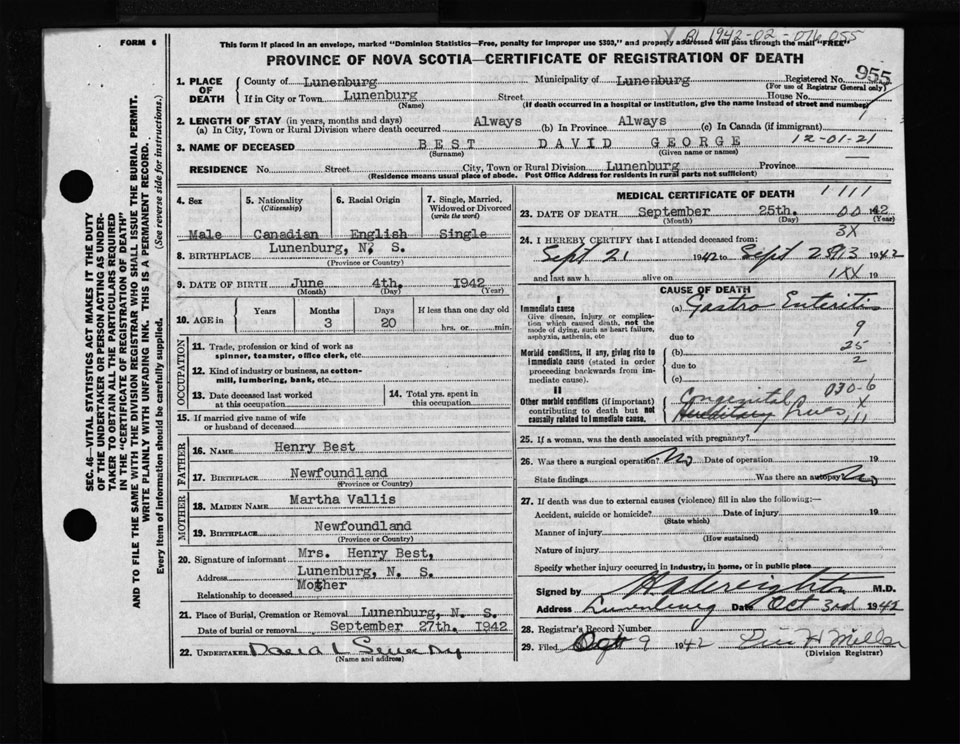 BI 1942-02-076055
FORM 6
This form if placed in an envelope, marked "Dominion Statistics—Free, penalty for improper use $300," and properly addressed will pass through the mail "FREE"
PROVINCE OF NOVA SCOTIA—CERTIFICATE OF REGISTRATION OF DEATH
SEC. 46—VITAL STATISTICS ACT MAKES IT THE DUTY
OF THE UNDERTAKER OR PERSON ACTING AS UNDER-
TAKER TO OBTAIN ALL THE PARTICULARS REQUIRED
IN THE "CERTIFICATE OF REGISTRATION OF DEATH"
AND TO FILE THE SAME WITH THE DIVISION REGISTRAR WHO SHALL ISSUE THE BURIAL PERMIT.
WRITE PLAINLY WITH UNFADING INK. THIS IS A PERMANENT RECORD.
Every item of information should be carefully supplied. (See reverse side for instructions.)
1. PLACE OF DEATH
County of Lunenburg Municipality of Lunenburg Registered No. 955
(For use of Registrar General only)
If in City or Town Lunenburg Street House No.
(Name) (If death occurred in a hospital or institution, give the name instead of street and number)
2. LENGTH OF STAY (in years, months and days)
(a) In City, Town or Rural Division where death occurred Always (b) In Province Always (c) In Canada (if immigrant)
3. NAME OF DECEASED BEST DAVID GEORGE 12-01-21
(Surname) (Given name or names)
RESIDENCE No. Street City, Town or Rural Division Lunenburg Province
(Residence means usual place of abode. Post Office Address for residents in rural parts not sufficient)
4. Sex 5. Nationality (Citizenship) 6. Racial Origin 7. Single, Married, Widowed or Divorced (write the word)
Male Canadian English Single
8. BIRTHPLACE Lunenburg, N. S.
(Province or Country)
9. DATE OF BIRTH June 4th. 1942
(Month) (Day) (Year)
10. AGE in Years Months Days If less than one day old
3 20 hrs. or min.
OCCUPATION
11. Trade, profession or kind of work as spinner, teamster, office clerk, etc.
12. Kind of industry or business, as cotton-mill, lumbering, bank, etc.
13. Date deceased last worked at this occupation 14. Total yrs. spent in this occupation
15. If married give name of wife or husband of deceased
FATHER
16. NAME Henry Best
17. BIRTHPLACE Newfoundland
(Province or Country)
MOTHER
18. MAIDEN NAME Martha Vallis
19. BIRTHPLACE Newfoundland
(Province or Country)
20. Signature of informant Mrs. Henry Best,
Address Lunenburg, N. S.
Relationship to deceased Mother
21. Place of Burial, Cremation or Removal Lunenburg, N. S.
Date of burial or removal September 27th. 1942
22. UNDERTAKER David L
(Name and address)
MEDICAL CERTIFICATE OF DEATH 1 111
23. DATE OF DEATH September 25th. 00 42
(Month) (Day) (Year)
3X
24. I HEREBY CERTIFY that I attended deceased from:
Sept 21 1942 to Sept 25 1942
and last saw h alive on 1XX 19
CAUSE OF DEATH
I
Immediate cause (a) Gastro Enteritis
Give disease, injury, or complication which caused death, not the mode of dying, such as heart failure, asphyxia, asthenia, etc
due to 9
25
Morbid conditions, if any, giving rise to immediate cause (stated in order proceeding backwards from immediate cause). (b)
2
due to
(c)
030-6
II
Other morbid conditions (if important) contributing to death but not causally related to immediate cause. Congenital X
Hereditary Lues 111
25. If a woman, was the death associated with pregnancy?
26. Was there a surgical operation? No Date of operation 19
State findings Was there an autopsy? No
27. If death was due to external causes (violence) fill in also the following:—
Accident, suicide or homicide? Date of injury 19
(State which)
Manner of injury
(How sustained)
Nature of injury
Specify whether injury occurred in industry, in home, or in public place
Signed by M.D.
Address Lunenburg Date Oct 3rd 1942
28. Registrar's Record Number
29. Filed Oct 9 1942 H Miller
(Division Registrar)